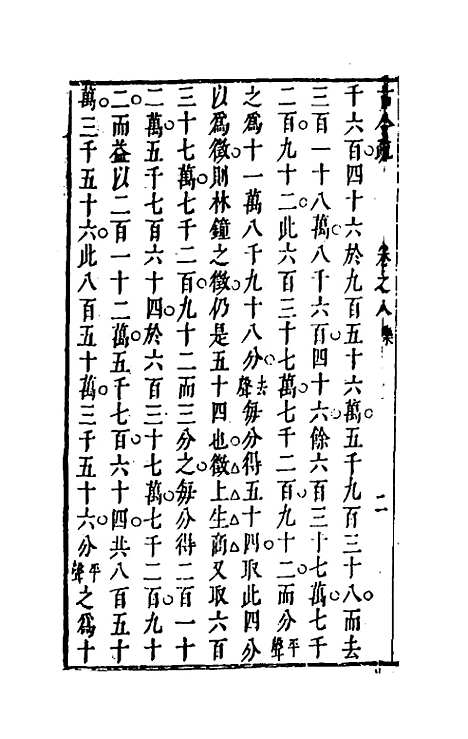 卷之八 樂 二
千六百四十六於九百五十六萬五千九百三十八而去
三百一十八萬八千六百四十六餘六百三十七萬七千
二百九十二此六百三十七萬七千二百九十二而分平聲
之爲十一萬八千九十八分去聲每分得五十四取此四分
以爲徵則林鐘之徵仍是五十四也徵上生商又取六百
三十七萬七千二百九十二而三分之每分得二百一十
二萬五千七百六十四於六百三十七萬七千二百九十
二而益以二百一十二萬五千七百六十四共八百五十
萬三千五十六此八百五十萬三千五十六分平聲之爲十